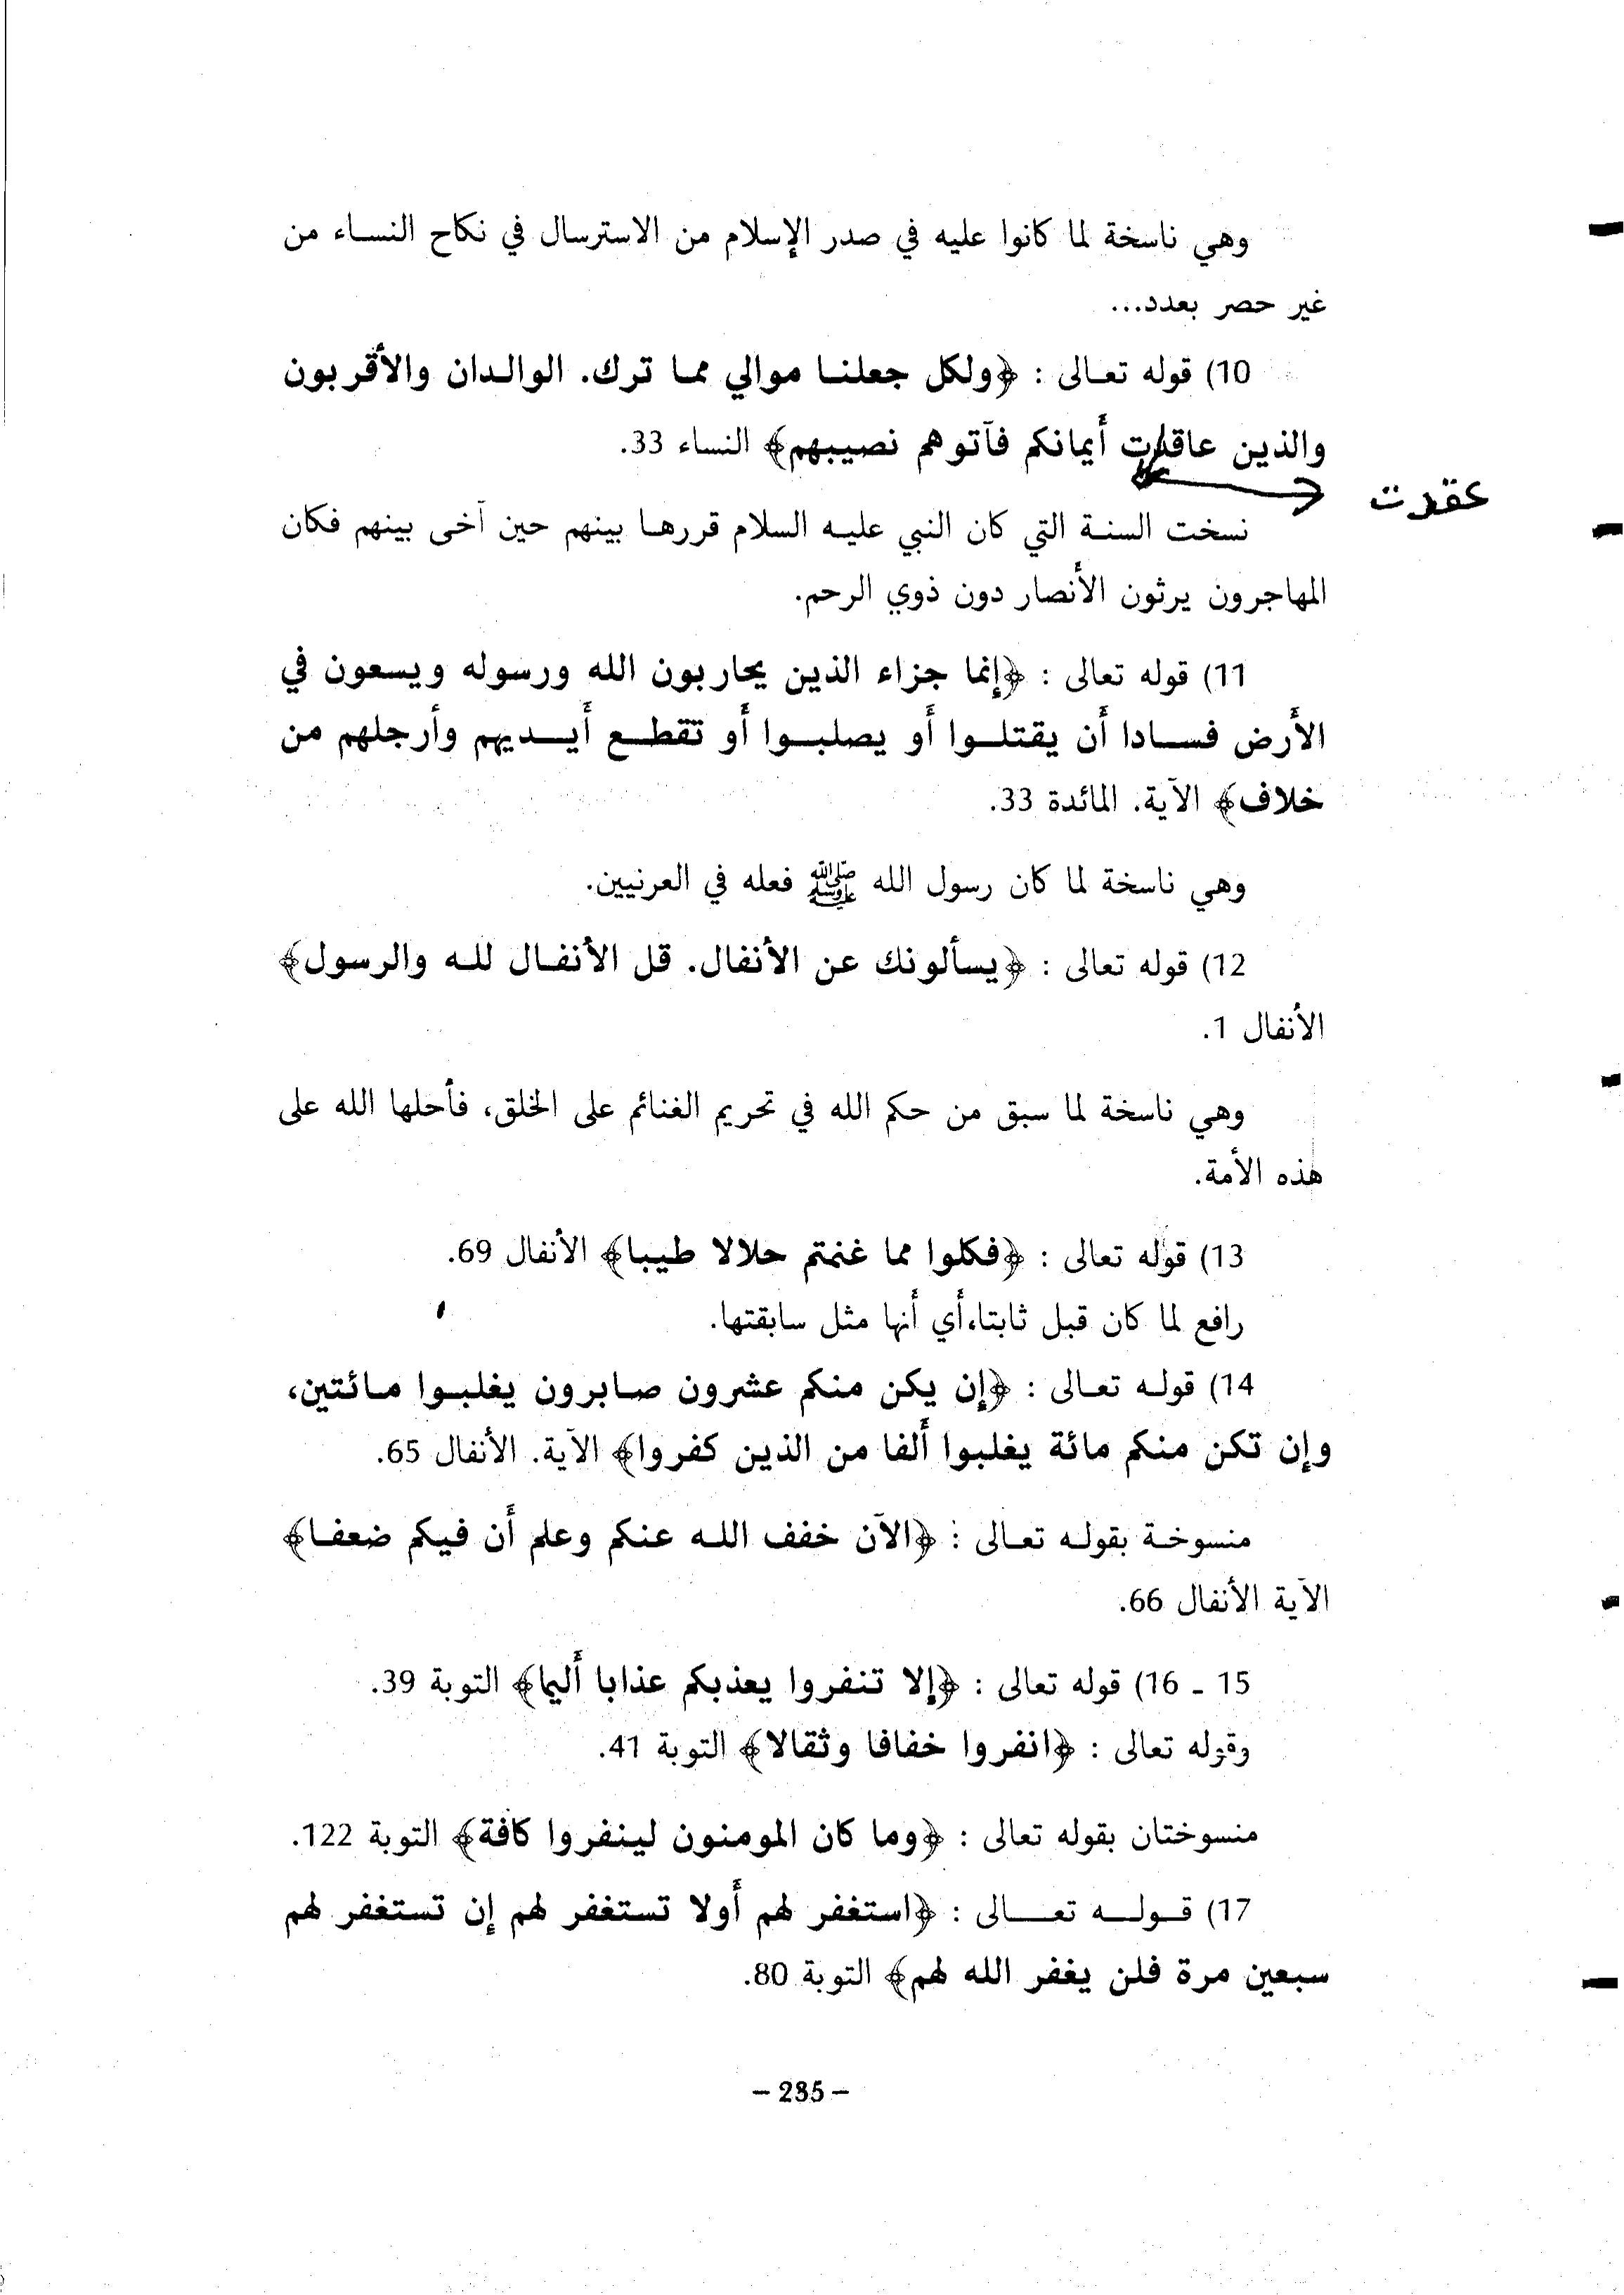 وهي ناسخة لما كانوا عليه في صدر الإسلام من الاسترسال في نكاح النساء من
غير حصر بعدد...
10) قوله تعالى : ﴿ولكل جعلنا موالي مما ترك. الوالدان والأقربون
والذين عاقدت أيمانكم فآتوهم نصيبهم﴾ النساء 33.
عقدت
نسخت السنة التي كان النبي عليه السلام قررها بينهم حين آخى بينهم فكان
المهاجرون يرثون الأنصار دون ذوي الرحم.
11) قوله تعالى : ﴿إنما جزاء الذين يحاربون الله ورسوله ويسعون في
الأرض فسادا أن يقتلوا أو يصلبوا أو تقطع أيديهم وأرجلهم من
خلاف﴾ الآية. المائدة 33.
وهي ناسخة لما كان رسول الله ﷺ فعله في العرنيين.
12) قوله تعالى : ﴿يسألونك عن الأنفال. قل الأنفال لله والرسول﴾
الأنفال 1.
وهي ناسخة لما سبق من حكم الله في تحريم الغنائم على الخلق، فأحلها الله على
هذه الأمة.
13) قوله تعالى : ﴿فكلوا مما غنمتم حلالا طيبا﴾ الأنفال 69.
رافع لما كان قبل ثابتا،أي أنها مثل سابقتها.
14) قوله تعالى : ﴿إن يكن منكم عشرون صابرون يغلبوا مائتين،
وإن تكن منكم مائة يغلبوا ألفا من الذين كفروا﴾ الآية. الأنفال 65.
منسوخة بقوله تعالى : ﴿الآن خفف الله عنكم وعلم أن فيكم ضعفا﴾
الآية الأنفال 66.
15 - 16) قوله تعالى : ﴿إلا تنفروا يعذبكم عذابا أليما﴾ التوبة 39.
وقوله تعالى : ﴿انفروا خفافا وثقالا﴾ التوبة 41.
منسوختان بقوله تعالى : ﴿وما كان المومنون لينفروا كافة﴾ التوبة 122.
17) قوله تعالى : ﴿استغفر لهم أولا تستغفر لهم إن تستغفر لهم
سبعين مرة فلن يغفر الله لهم﴾ التوبة 80.
– 285 –